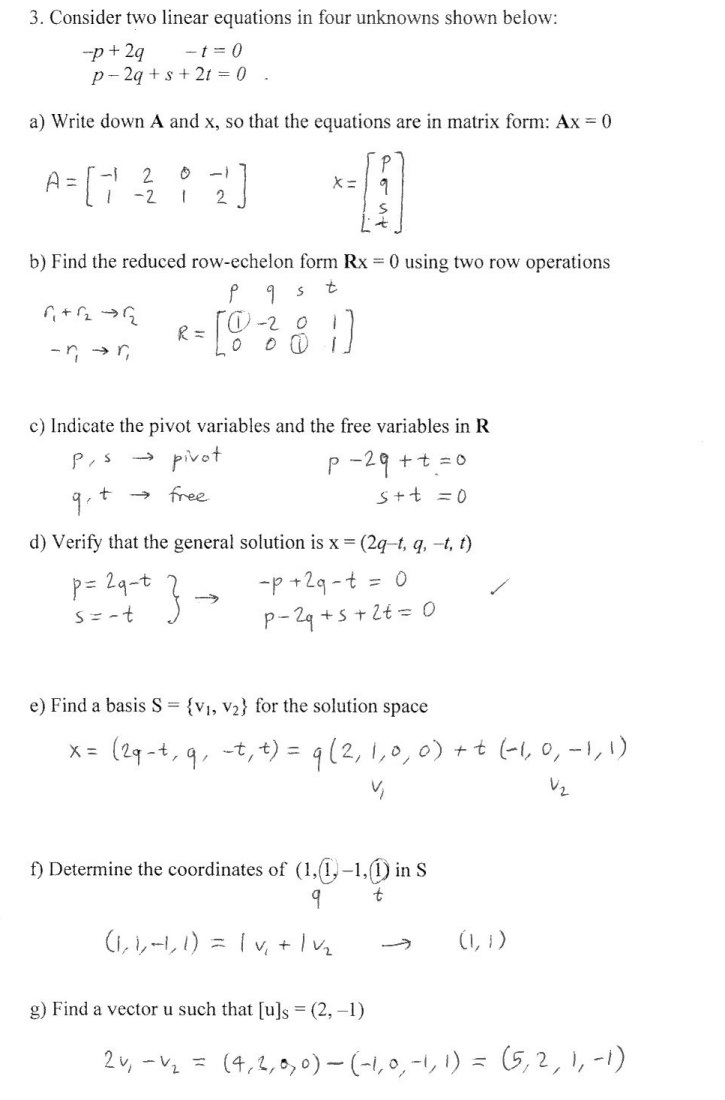 3. Consider two linear equations in four unknowns shown below:
-p + 2q - t = 0
p - 2q + s + 2t = 0 .
a) Write down A and x, so that the equations are in matrix form: Ax = 0
A = [ -1 2 0 -1
1 -2 1 2 ]
x = [ p
q
s
t ]
b) Find the reduced row-echelon form Rx = 0 using two row operations
p q s t
r₁ + r₂ → r₂
-r₁ → r₁
R = [ 1 -2 0 1
0 0 1 1 ]
c) Indicate the pivot variables and the free variables in R
p, s → pivot p - 2q + t = 0
q, t → free s + t = 0
d) Verify that the general solution is x = (2q–t, q, –t, t)
p = 2q-t } → -p + 2q - t = 0 ✓
s = -t p - 2q + s + 2t = 0
e) Find a basis S = {v₁, v₂} for the solution space
x = (2q-t, q, -t, t) = q(2, 1, 0, 0) + t(-1, 0, -1, 1)
v₁ v₂
f) Determine the coordinates of (1,1,–1,1) in S
q t
(1, 1, -1, 1) = 1 v₁ + 1 v₂ → (1, 1)
g) Find a vector u such that [u]s = (2, –1)
2v₁ - v₂ = (4, 2, 0, 0) - (-1, 0, -1, 1) = (5, 2, 1, -1)